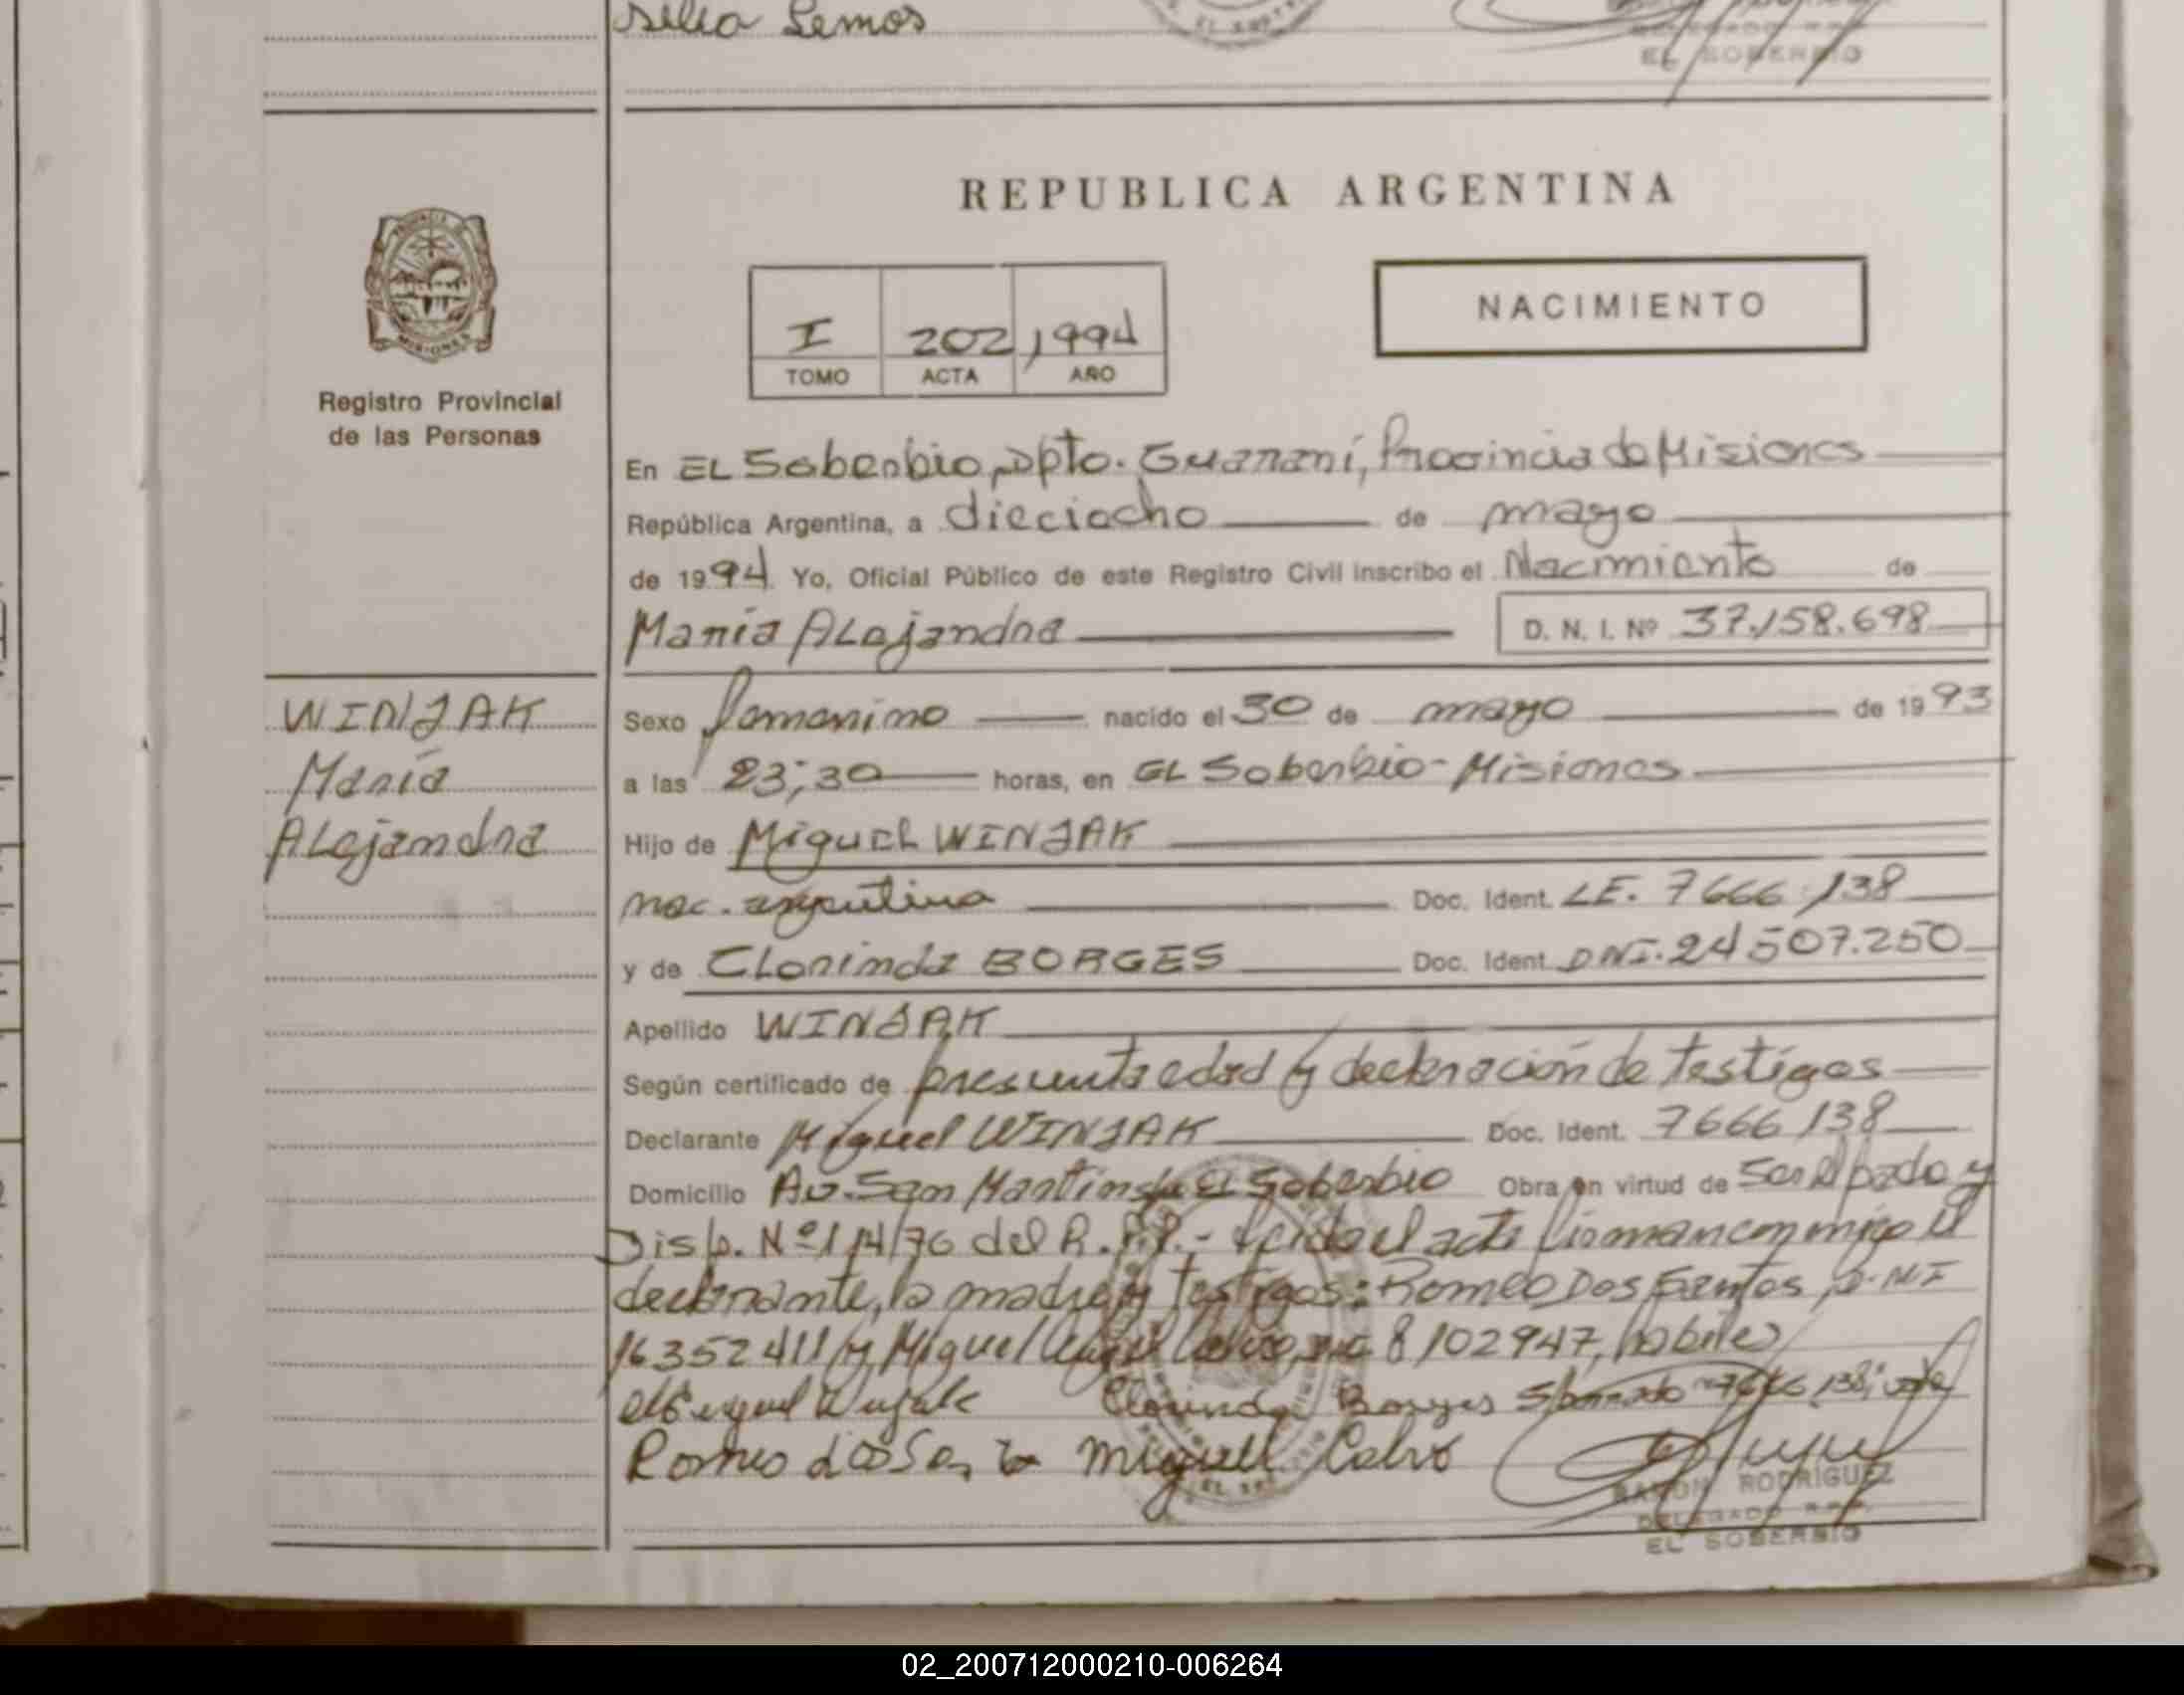 Lemos
EL SOBERBIO
REPUBLICA ARGENTINA
NACIMIENTO
I 202 1994
TOMO ACTA AÑO
MISIONES
Registro Provincial
de las Personas
En EL Soberbio, Dpto. Guaraní, Provincia de Misiones
República Argentina, a dieciocho de mayo
de 1994. Yo, Oficial Público de este Registro Civil inscribo el Nacimiento de
María ALejandra D. N. I. Nº 37.158.698
WINJAK
María
ALejandra
Sexo femenino nacido el 30 de mayo de 1993
a las 23;30 horas, en EL Soberbio - Misiones
Hijo de Miguel WINJAK
nac. argentina Doc. Ident. LE. 7666.138
y de CLorinda BORGES Doc. Ident. DNI. 24507.250
Apellido WINJAK
Según certificado de presunta edad y declaración de testigos
Declarante Miguel WINJAK Doc. Ident. 7666138
Domicilio Av. San Martín El Soberbio Obra en virtud de ser el padre y
Disp. Nº 114/76 del R.P.P.- Leida el acta firman conmigo el
declarante, la madre y testigos: Romeo Dos Santos, D.N.I
16352411 y Miguel Angel Calvo, 8102947, habiles
Clorinda Borges S/borrado 7666138; vale
Romeo Miguel Calvo
RAMON RODRIGUEZ
DELEGADO R.P.P.
EL SOBERBIO
02_200712000210-006264